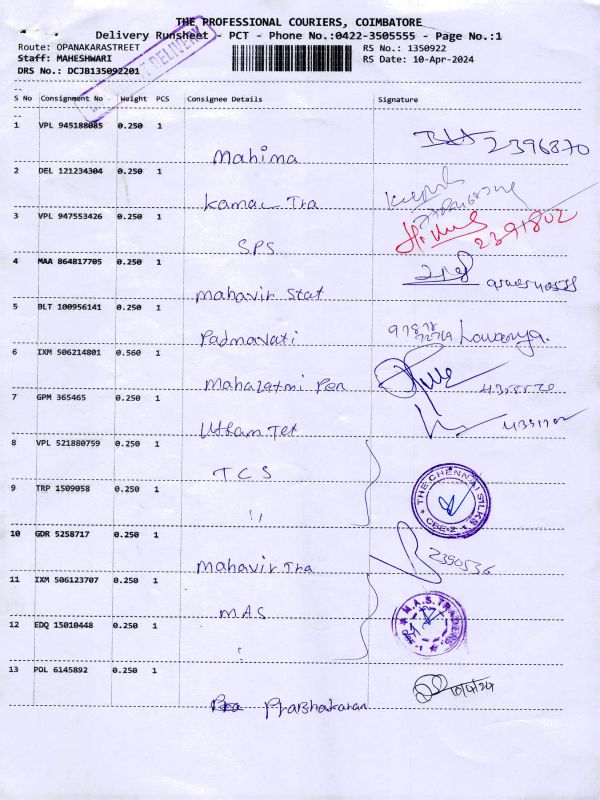 THE PROFESSIONAL COURIERS, COIMBATORE
Delivery Runsheet - PCT - Phone No.:0422-3505555 - Page No.:1
Route: OPANAKARASTREET RS No.: 1350922
Staff: MAHESHWARI RS Date: 10-Apr-2024
DRS No.: DCJB135092201
DELIVERY
S No Consignment No Weight PCS Consignee Details Signature
1 VPL 945188085 0.250 1 Mahima 2396870
2 DEL 121234304 0.250 1 Kamal Tra
3 VPL 947553426 0.250 1 SPS 2391802
4 MAA 864817705 0.250 1 Mahavir Stat
5 BLT 100956141 0.250 1 Padmavati 97878 72769 Lavanya.
6 IXM 506214801 0.560 1 Mahalatmi Pen
7 GPM 365465 0.250 1 Uttam Tex
8 VPL 521880759 0.250 1 TCS
THE CHENNAI SILKS
CBE-2.
9 TRP 1509058 0.250 1 ,,
10 GDR 5258717 0.250 1 Mahavir Tra 2390536
11 IXM 506123707 0.250 1 MAS
M.A.S. TRADERS
12 EDQ 15010448 0.250 1 ,
13 POL 6145892 0.250 1 Prabhakaran 10/4/24